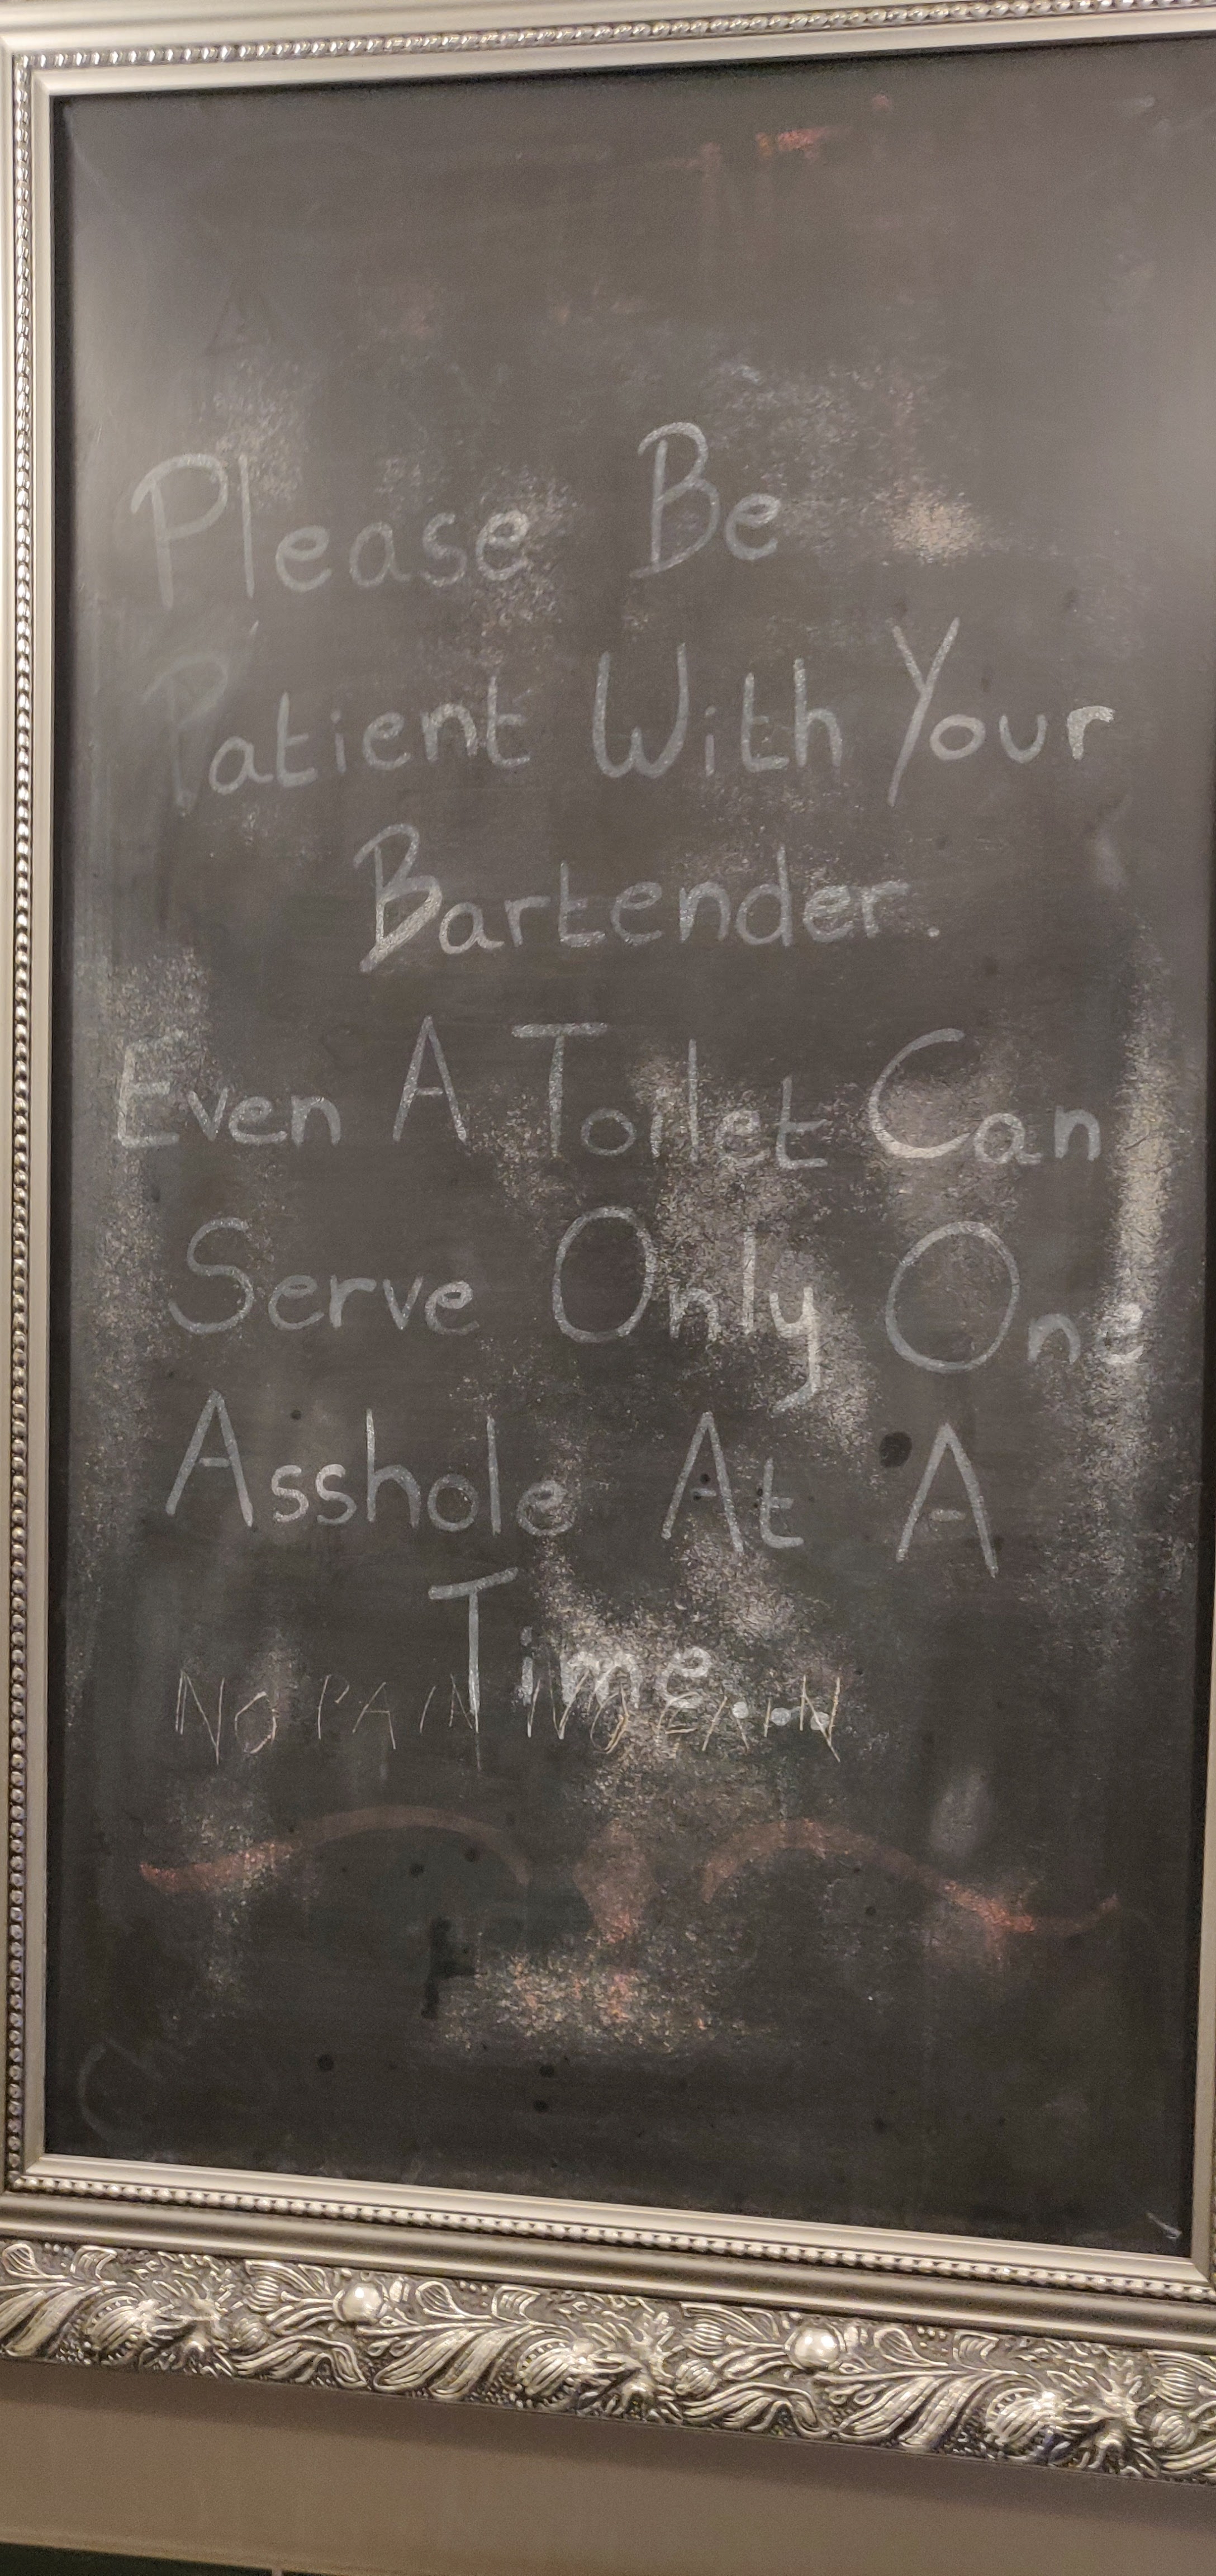 Please Be
Patient With Your
Bartender.
Even A Toilet Can
Serve Only One
Asshole At A
Time...
NO PAIN NO GAIN